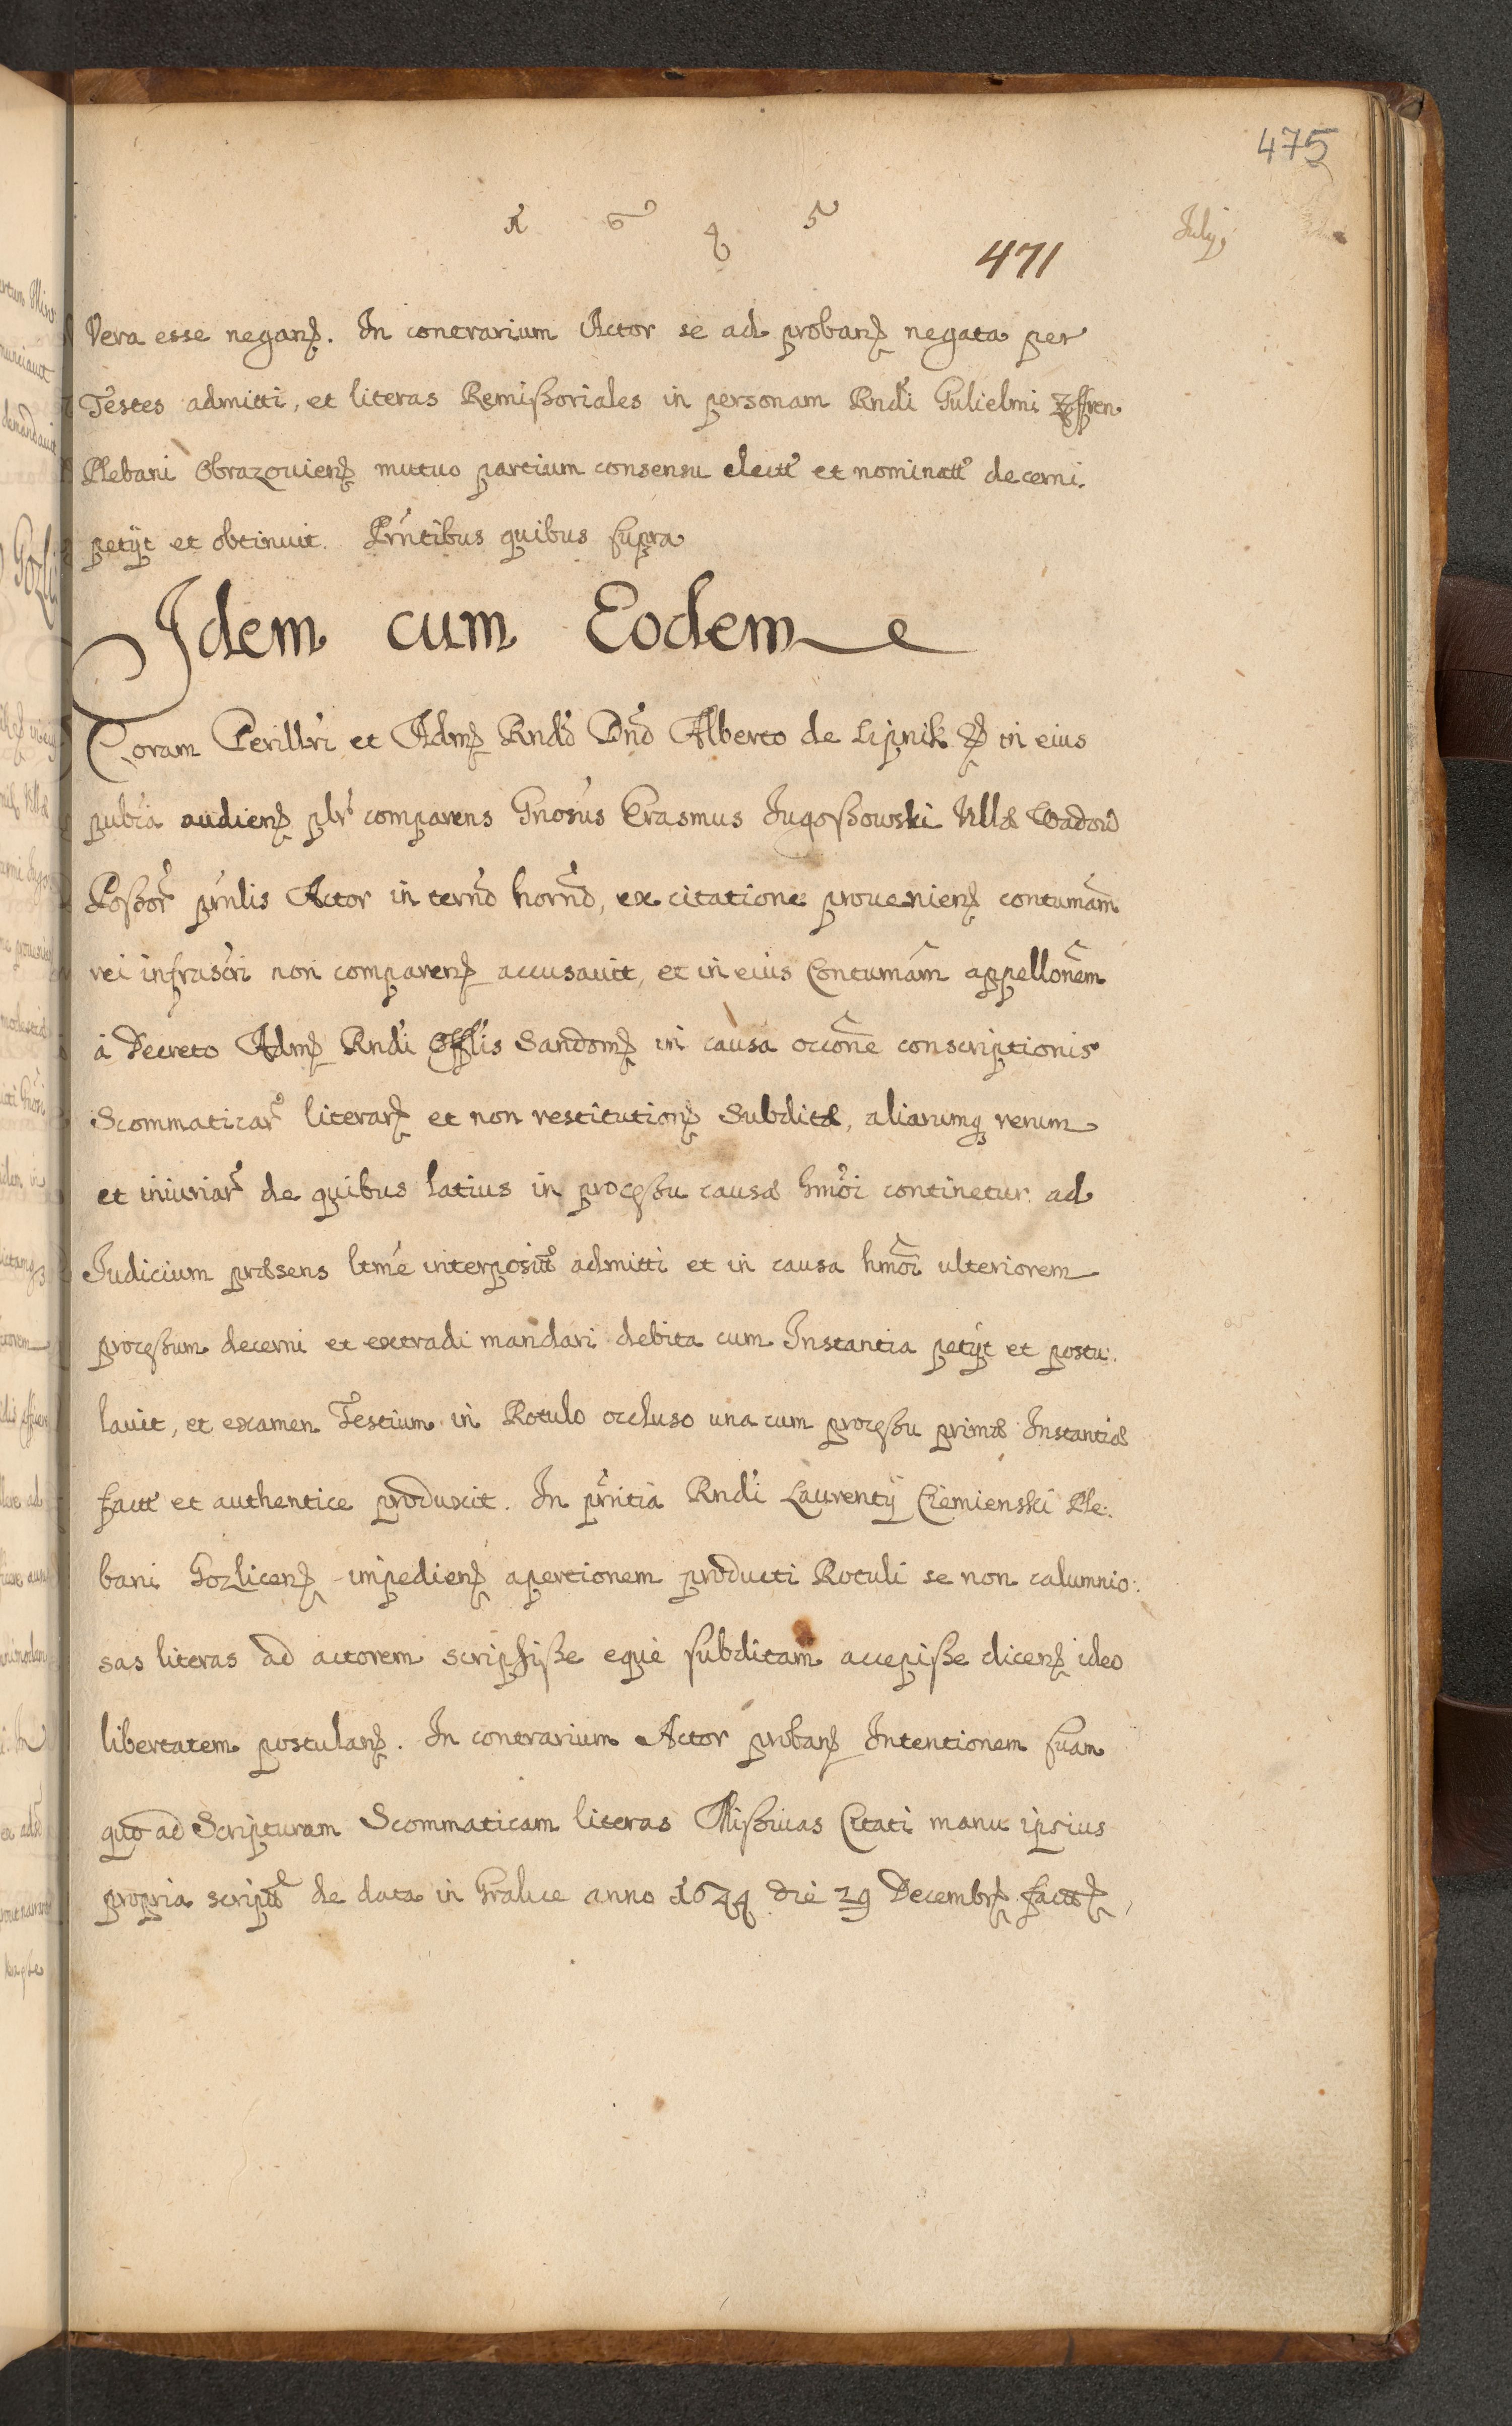 475
1 6 4 5
July
471
Vera esseneganꝫ. In contrarium Actor se ad probanꝫ negata per
Testes admitti, et literas Remißoriales in personam Rndi Gulielmi
Plebani Obrazouienꝫ mutuo partium consensu elect et nominat decerni
petijt et obtinuit. Prntibus quibus supra
Idem cum Eodem
Coram Perillri et Admꝫ Rndo Dno Alberto de Lipnik ꝫ in eius
publca audienꝫ plr comparens Gnosus Erasmus Jugoßowski Villæ Wadow
Poßor prnlis Actor in termo horno, ex citatione prouenienꝫ contumam
rei infrascri non comparenꝫ accusauit, et in eius Contumam appellonem
à Decreto Admꝫ Rndi Offlis Sandomꝫ in causa occone conscriptionis
Scommaticar literarꝫ et non restitutionꝫ Subditæ, aliarumqꝫ rerum
et iniuriar de quibus latius in proceßu causæ hmoi continetur ad
Iudicium præsens ltme interposit admitti et in causa hmoi ulteriorem
proceßum decerni et extradi mandari debita cum Instantia petijt et postu:
lauit, et examen Testium in Rotulo occluso una cum proceßu primæ Instantiæ
fact et authentice produxit. In prntia Rndi Laurentij Ciemienski Ple:
bani Gozlicenꝫ impedienꝫ apertionem producti Rotuli se non calumnio:
sas literas ad actorem scripsiße eque subditam accepiße dicenꝫ ideo
libertatem postulanꝫ. In contrarium Actor probanꝫ Intentionem suam
quo ad Scripturam Scommaticam literas Mißiuas Citati manu ipsius
propria script de data in Gralice anno 1644 die 29 Decembrꝫ factꝫ,